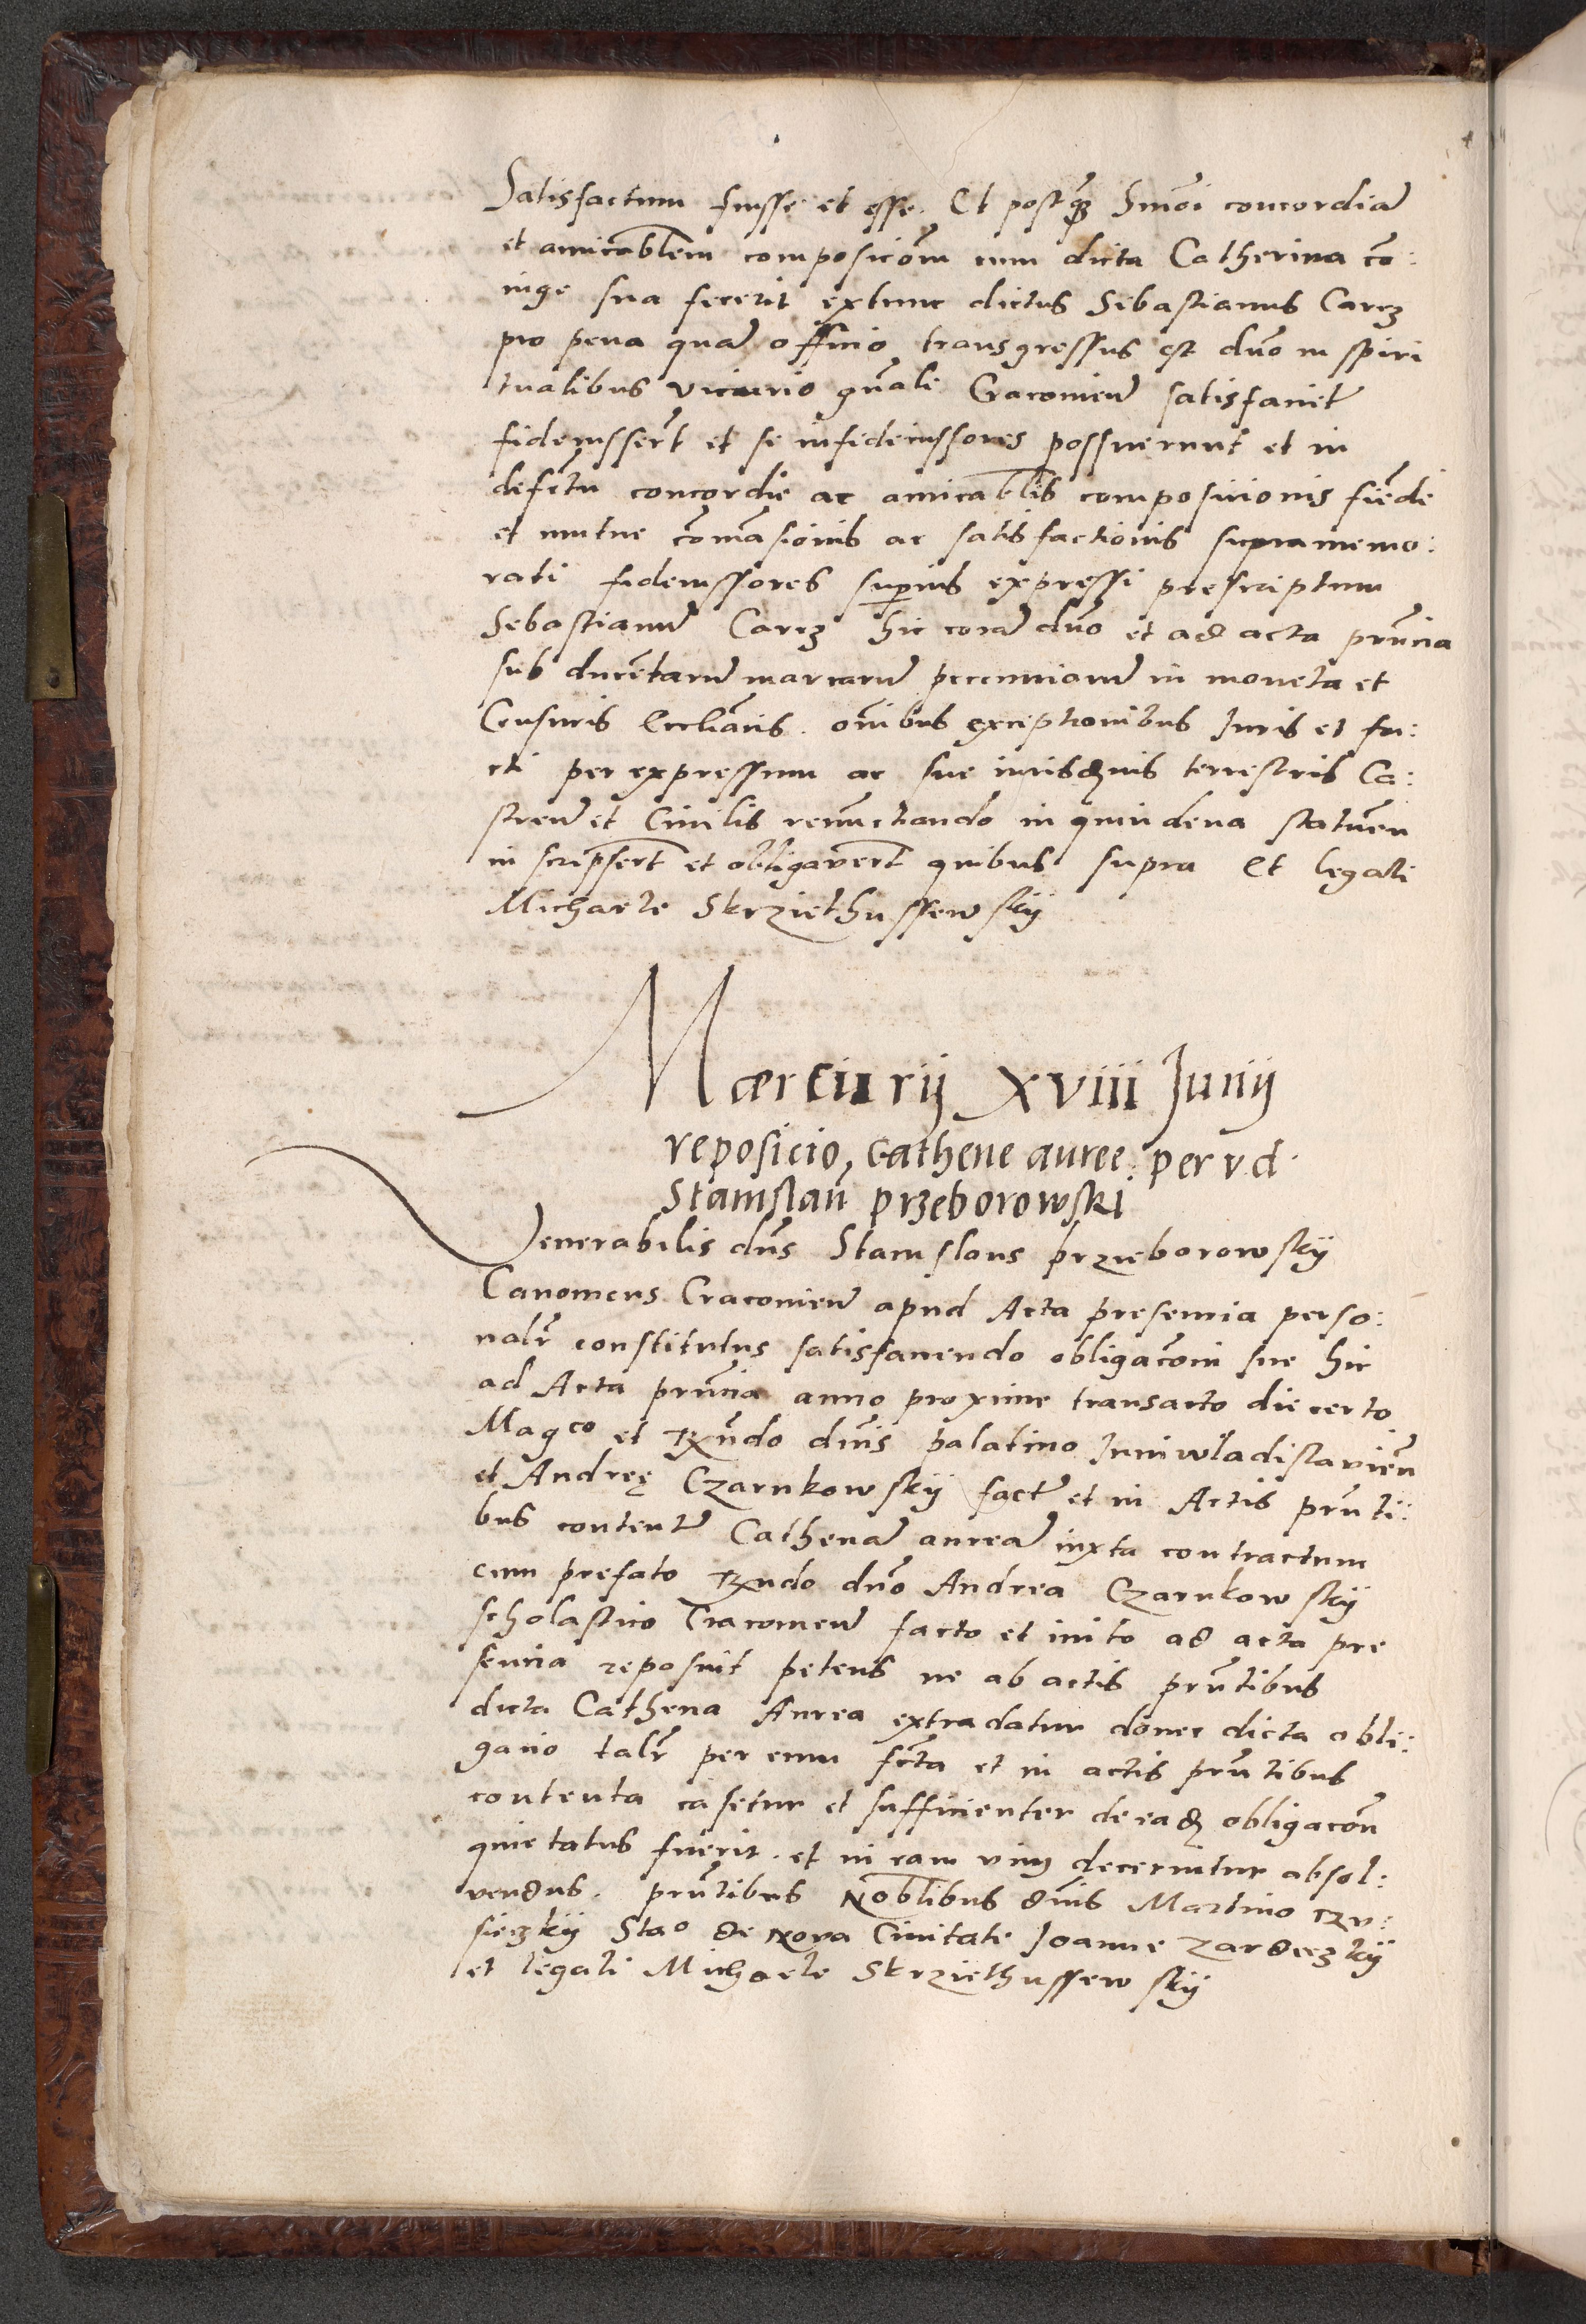 Satisfactum fuisse et esse. Et postq̃ Sm̃oi concordiã
et amicablem composicõm cum dicta Catherina cõ:
iuge sua fecerit extunc dictus Sebastianus Carcz
pro pena quã officio transgressus est dño in spiri
tualibus vicario gñali Cracovień satisfaciet
fideiussert̃ et se in fideiussores possuerunt et in
defectu concordie ac amicablis composicionis fiẽde
et mutue com̃asionis ac satisfactionis supramemo:
rati fideiussores superius expressi prescriptum
Sebastianũ Carcz hic corã dño et ad acta pñcia
sub ducẽtarũ marcarũ pecuniarũ in moneta et
Censuris Eccliãcis. om̃ibus exceptionibus Iuris et fa:
cti per expressum ac sue iurisdnis terrestris Ca:
streń et Civilis renũctiando in quindena statuẽn
inscripsert̃ et obligavert̃ quibus supra Et legali
Michaele Skrziethussewskÿ
Mercurÿ XVIII Junÿ
reposicio Cathene auree per v. d.
Stanislaũ przeborowski
Venerabilis dñs Stanislaus przieborowskÿ
Canonicus Cracovień apud Acta presencia perso:
nalr̃ constitutus satisfaciendo obligacõni sue hic
ad Acta pñcia anno proxime transacto die certo
Magco et Rñdo dñis palatino Juniwladislavieñ
et Andreę Czarnkowskÿ facte et in Actis pñti:
bus contente Cathenã aureã iuxta contractum
cum prefato Rndo dño Andrea Czarnkowskÿ
scholastico Cracovień facto et inito ad acta pre
sencia reposuit petens ne ab actis pñtibus
dicta Cathena Aurea extradatur donec dicta obli:
gacio talr̃ per eum fcta et in actis pñtibus
contenta casetur et sufficienter de eadem obligacõn
quietatus fuerit. et in eam vim decernitur absol:
vendus. pñtibus Noblibus dñis Martino Rzu:
sieczkÿ Stao de Nova Civitate Joanne Zardeczkÿ
et legali Michaele Skrziethussewskÿ